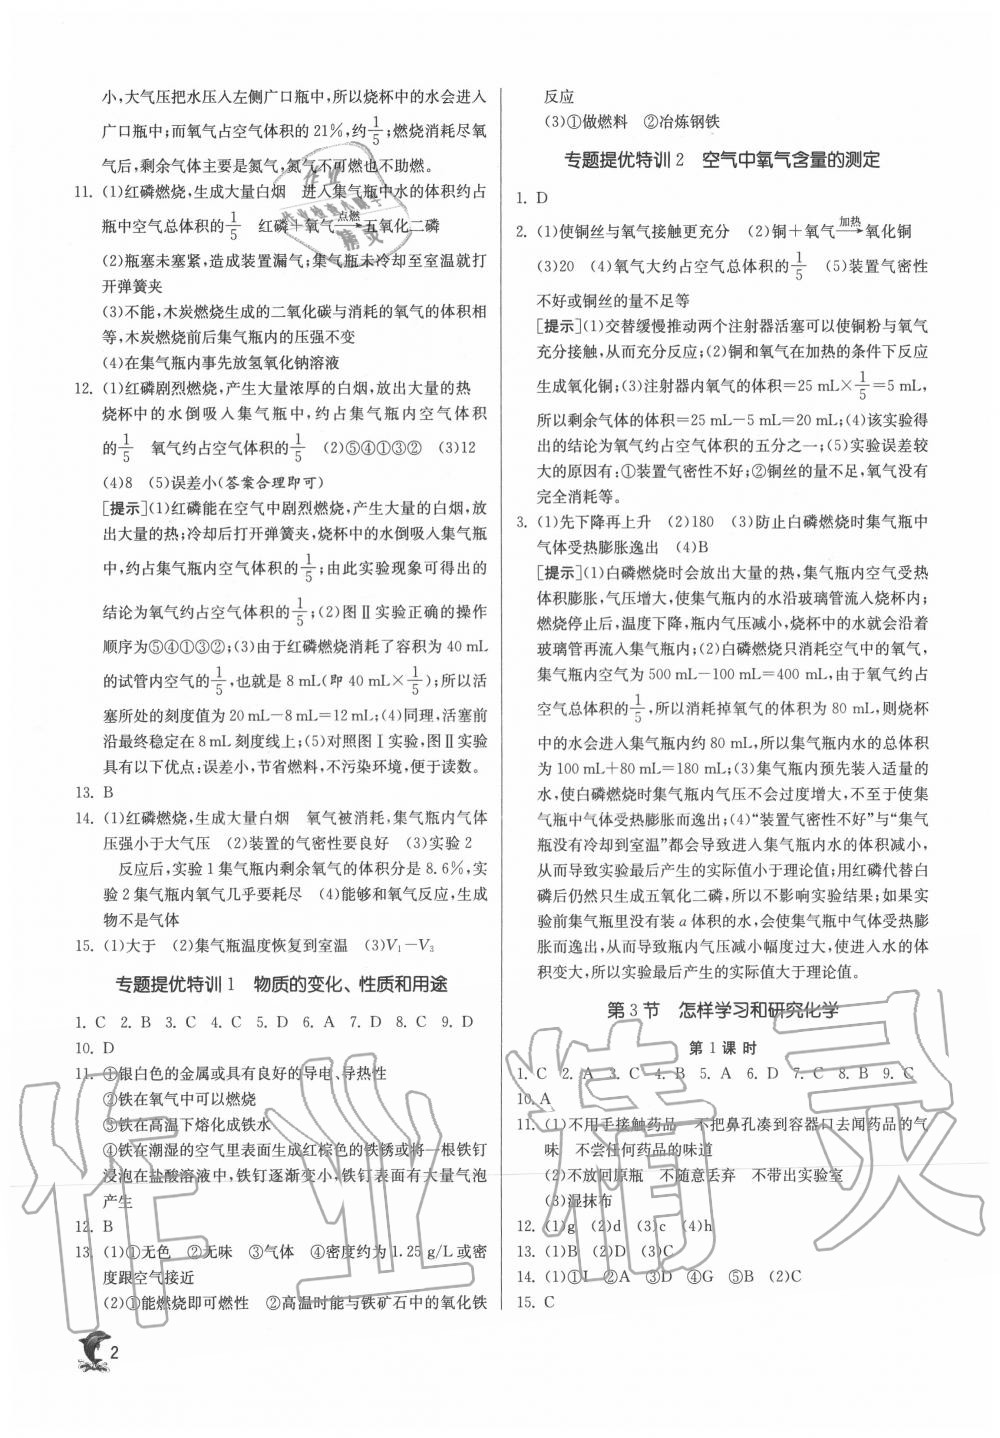 小,大气压把水压入左侧广口瓶中,所以烧杯中的水会进入
广口瓶中;而氧气占空气体积的21%,约1/5;燃烧消耗尽氧
气后,剩余气体主要是氮气,氮气不可燃也不助燃。
11. (1)红磷燃烧,生成大量白烟 进入集气瓶中水的体积约占
瓶中空气总体积的1/5 红磷+氧气 点燃→ 五氧化二磷
(2)瓶塞未塞紧,造成装置漏气;集气瓶未冷却至室温就打
开弹簧夹
(3)不能,木炭燃烧生成的二氧化碳与消耗的氧气的体积相
等,木炭燃烧前后集气瓶内的压强不变
(4)在集气瓶内事先放氢氧化钠溶液
12. (1)红磷剧烈燃烧,产生大量浓厚的白烟,放出大量的热
烧杯中的水倒吸入集气瓶中,约占集气瓶内空气体积
的1/5 氧气约占空气体积的1/5 (2)⑤④①③② (3)12
(4)8 (5)误差小(答案合理即可)
[提示](1)红磷能在空气中剧烈燃烧,产生大量的白烟,放
出大量的热;冷却后打开弹簧夹,烧杯中的水倒吸入集气瓶
中,约占集气瓶内空气体积的1/5;由此实验现象可得出的
结论为氧气约占空气体积的1/5;(2)图Ⅱ实验正确的操作
顺序为⑤④①③②;(3)由于红磷燃烧消耗了容积为40 mL
的试管内空气的1/5,也就是8 mL(即40 mL×1/5);所以活
塞所处的刻度值为20 mL-8 mL=12 mL;(4)同理,活塞前
沿最终稳定在8 mL刻度线上;(5)对照图Ⅰ实验,图Ⅱ实验
具有以下优点:误差小,节省燃料,不污染环境,便于读数。
13. B
14. (1)红磷燃烧,生成大量白烟 氧气被消耗,集气瓶内气体
压强小于大气压 (2)装置的气密性要良好 (3)实验2
反应后,实验1集气瓶内剩余氧气的体积分是8.6%,实
验2集气瓶内氧气几乎要耗尽 (4)能够和氧气反应,生成
物不是气体
15. (1)大于 (2)集气瓶温度恢复到室温 (3)V₁-V₃
专题提优特训1 物质的变化、性质和用途
1. C 2. B 3. C 4. C 5. D 6. A 7. D 8. C 9. D
10. D
11. ①银白色的金属或具有良好的导电、导热性
②铁在氧气中可以燃烧
③铁在高温下熔化成铁水
④铁在潮湿的空气里表面生成红棕色的铁锈或将一根铁钉
浸泡在盐酸溶液中,铁钉逐渐变小,铁钉表面有大量气泡
产生
12. B
13. (1)①无色 ②无味 ③气体 ④密度约为1.25 g/L或密
度跟空气接近
(2)①能燃烧即可燃性 ②高温时能与铁矿石中的氧化铁
反应
(3)①做燃料 ②冶炼钢铁
专题提优特训2 空气中氧气含量的测定
1. D
2. (1)使铜丝与氧气接触更充分 (2)铜+氧气 加热→ 氧化铜
(3)20 (4)氧气大约占空气总体积的1/5 (5)装置气密性
不好或铜丝的量不足等
[提示](1)交替缓慢推动两个注射器活塞可以使铜粉与氧气
充分接触,从而充分反应;(2)铜和氧气在加热的条件下反应
生成氧化铜;(3)注射器内氧气的体积=25 mL×1/5=5 mL,
所以剩余气体的体积=25 mL-5 mL=20 mL;(4)该实验得
出的结论为氧气约占空气体积的五分之一;(5)实验误差较
大的原因有:①装置气密性不好;②铜丝的量不足,氧气没有
完全消耗等。
3. (1)先下降再上升 (2)180 (3)防止白磷燃烧时集气瓶中
气体受热膨胀逸出 (4)B
[提示](1)白磷燃烧时会放出大量的热,集气瓶内空气受热
体积膨胀,气压增大,使集气瓶内的水沿玻璃管流入烧杯内;
燃烧停止后,温度下降,瓶内气压减小,烧杯中的水就会沿着
玻璃管再流入集气瓶内;(2)白磷燃烧只消耗空气中的氧气,
集气瓶内空气为500 mL-100 mL=400 mL,由于氧气约占
空气总体积的1/5,所以消耗掉氧气的体积为80 mL,则烧杯
中的水会进入集气瓶内约80 mL,所以集气瓶内水的总体积
为100 mL+80 mL=180 mL;(3)集气瓶内预先装入适量的
水,使白磷燃烧时集气瓶内气压不会过度增大,不至于使集
气瓶中气体膨胀而逸出;(4)“装置气密性不好”与“集气
瓶没有冷却到室温”都会导致进入集气瓶内水的体积减小,
从而导致实验最后产生的实际值小于理论值;用红磷代替白
磷后仍然只生成五氧化二磷,所以不影响实验结果;如果实
验前集气瓶里没有装a体积的水,会使集气瓶中气体受热膨
胀而逸出,从而导致瓶内气压减小幅度过大,使进入水的体
积变大,所以实验最后产生的实际值大于理论值。
第3节 怎样学习和研究化学
第1课时
1. C 2. A 3. C 4. B 5. A 6. D 7. C 8. B 9. C
10. A
11. (1)不用手接触药品 不把鼻孔凑到容器口去闻药品的气
味 不尝任何药品的味道
(2)不放回原瓶 不随意丢弃 不带出实验室
(3)湿抹布
12. (1)g (2)d (3)c (4)h
13. (1)B (2)D (3)C
14. (1)①I ②A ③D ④G ⑤B (2)C
15. C
2
作业精灵